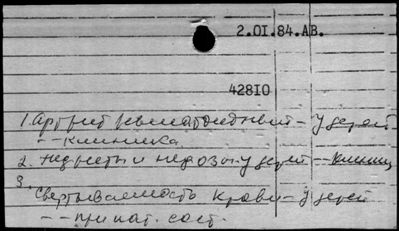 2.01.84.АВ.
42810
1. Артрит ревматоидный - у детей
-- клиника.
2. Нефриты и нефрозы у детей - клиник
3.
Свертываемость крови - у детей
-- при пат. сост.